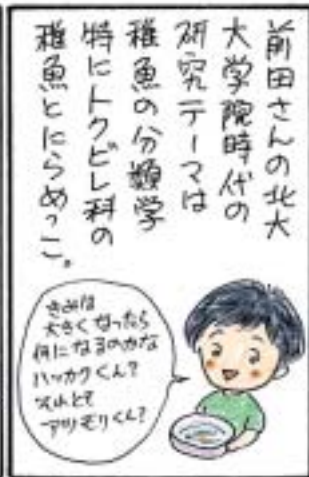 前田さんの北大
大学院時代の
研究テーマは
稚魚の分類学
特にトクビレ科の
稚魚とにらめっこ。
きみは
大きくなったら
何になるのかな
ハッカクくん?
それとも
アツモリくん?